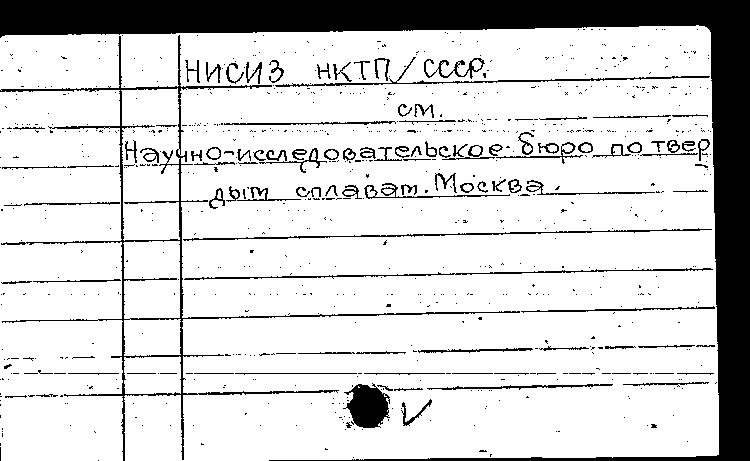 НИСИЗ НКТП/СССР.
см.
Научно-исследовательское бюро по твер
дым сплавам. Москва.